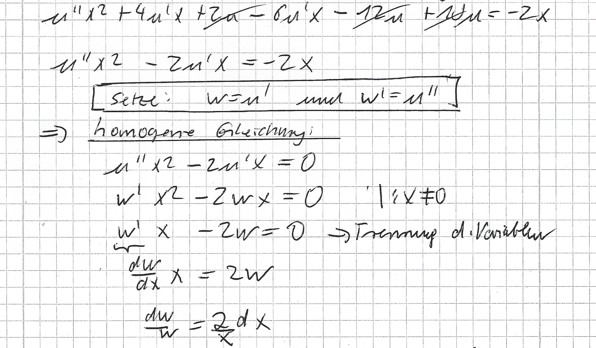 u''x² + 4u'x + 2u - 6u'x - 12u + 10u = -2x
u''x² - 2u'x = -2x
Setze: w=u' und w'=u''
=> homogene Gleichung:
u''x² - 2u'x = 0
w' x² - 2wx = 0 |:x≠0
w' x - 2w = 0 => Trennung d. Variablen
dw/dx x = 2w
dw/w = 2/x dx